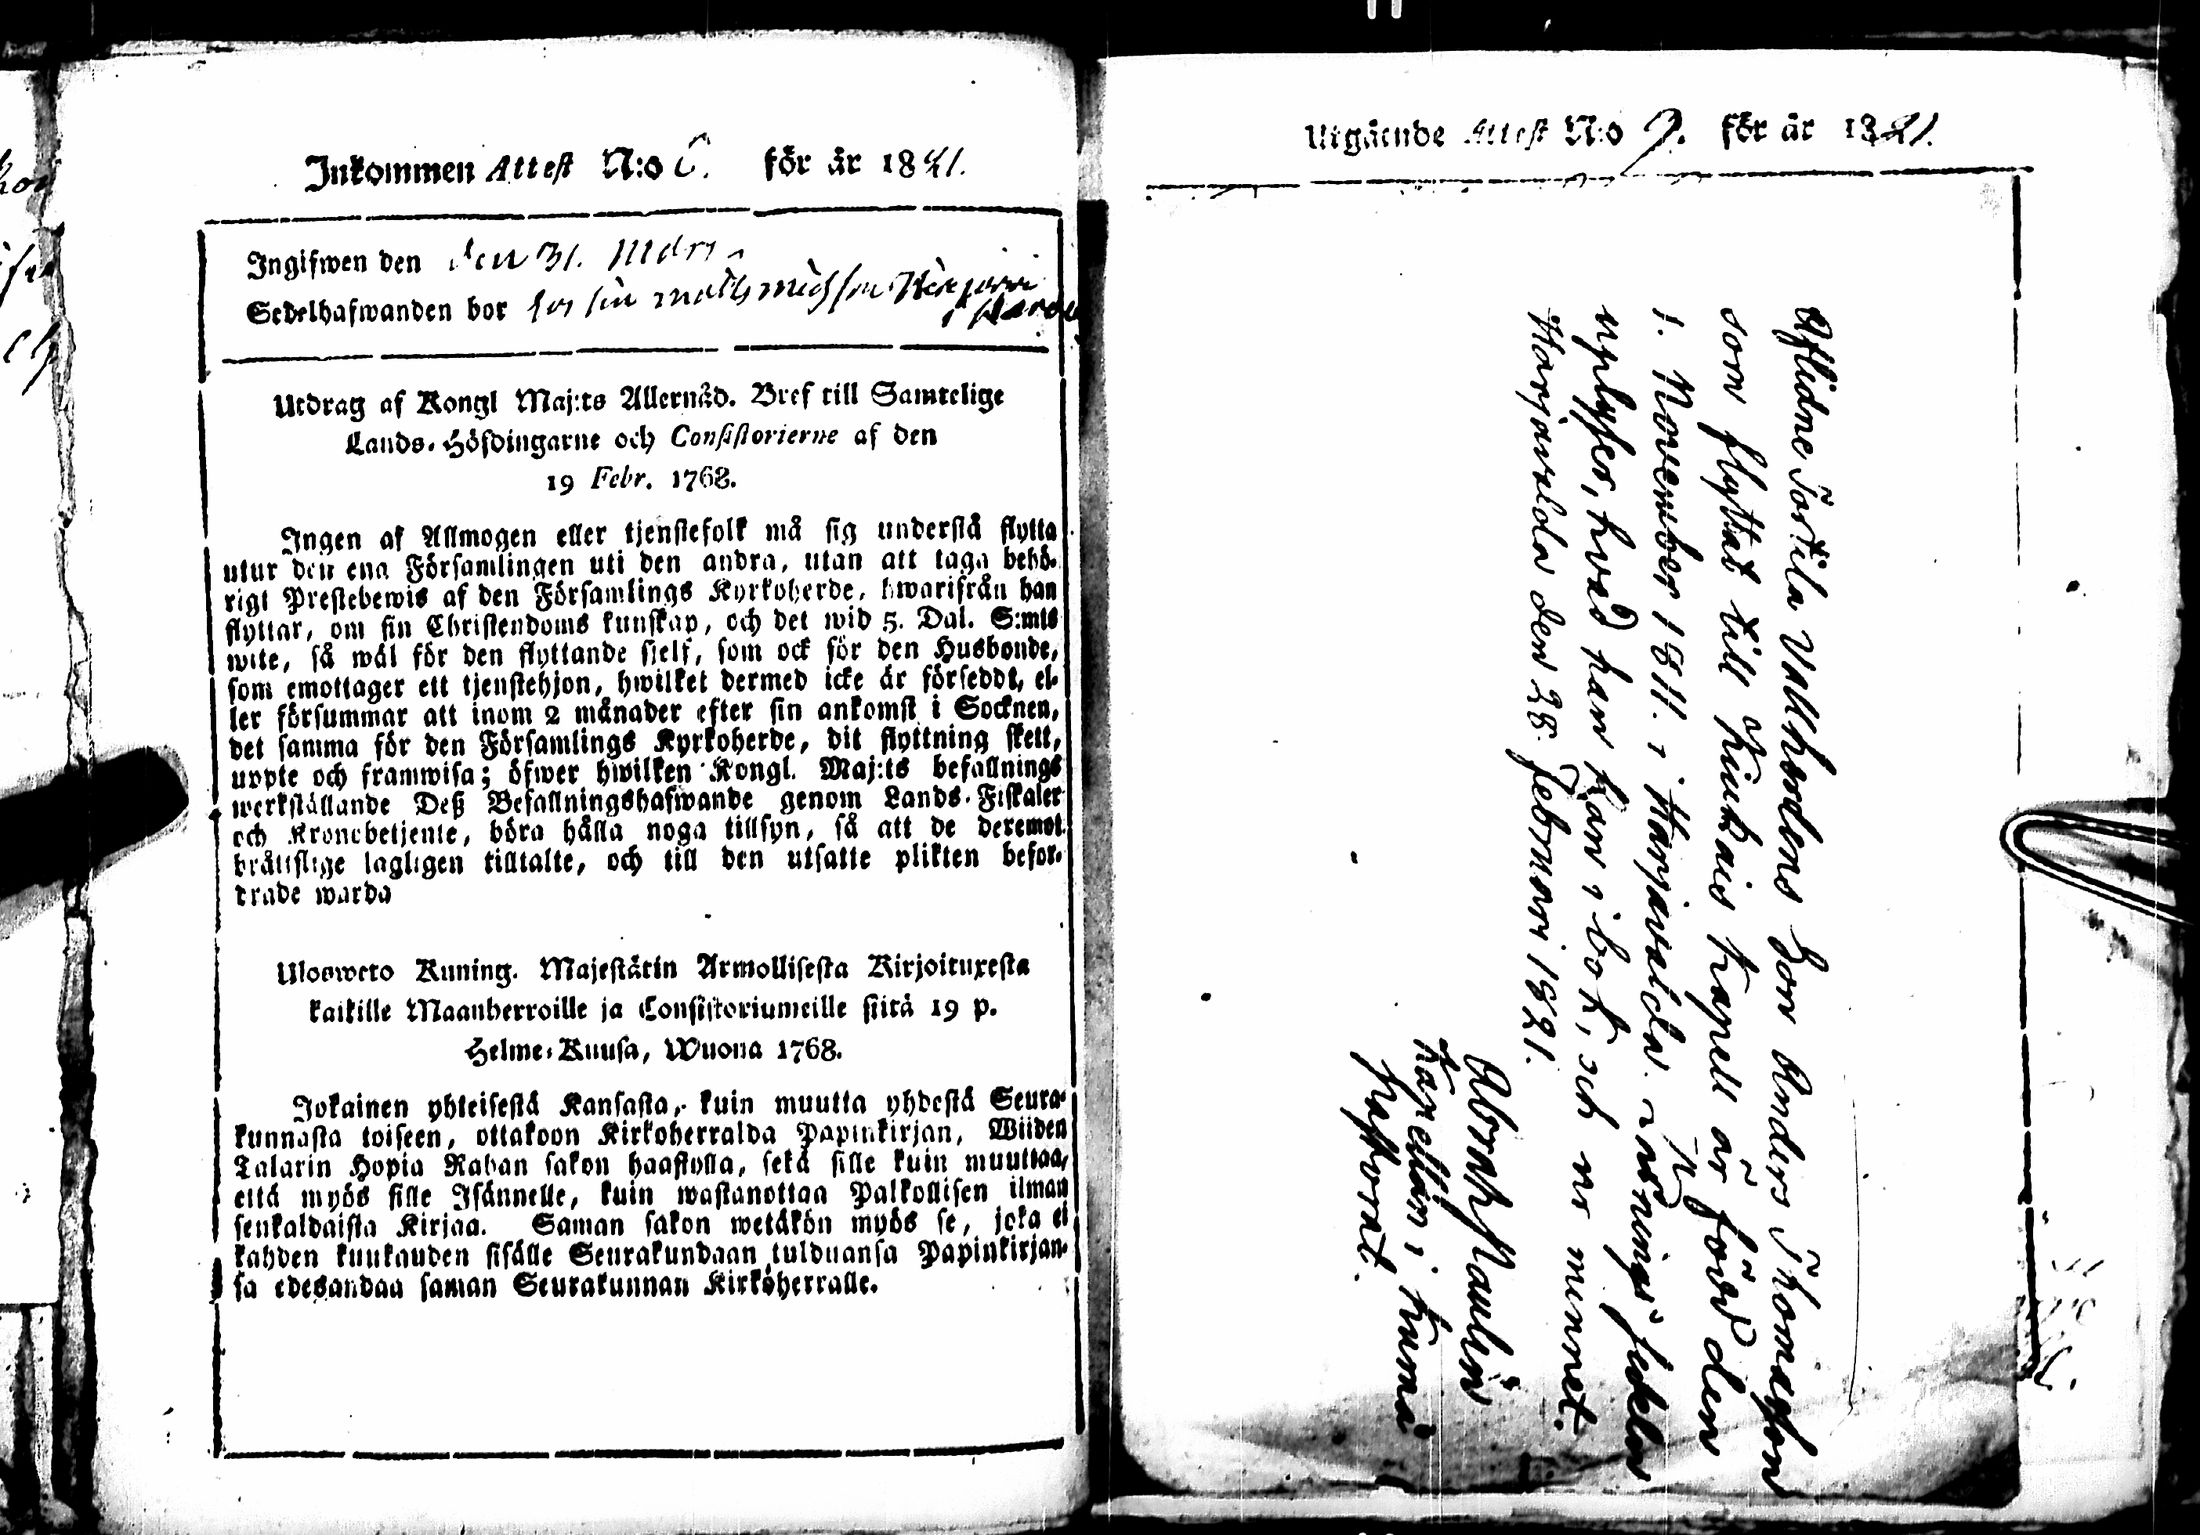 Inkommen Attest N:o 6. för år 1821.
Ingifwen den den 31. Mars
Sedelhafwanden bor hos sin
Utdrag af Kongl Maj:ts Allernåd. Bref till Samtelige
Lands-Höfdingarne och Consistorierne af den
19 Febr. 1768.
Ingen af Allmogen eller tjenstefolk må sig understå flytta
utur den ena Församlingen uti den andra, utan att taga behö-
rigt Prestebewis af den Församlings Kyrkoherde, hwarifrån han
flyttar, om sin Christendoms kunskap, och det wid 5. Dal. S:mts
wite, så wäl för den flyttande sjelf, som ock för den Husbonde,
som emottager ett tjenstehjon, hwilket dermed icke är förseddt, el-
ler försummar att inom 2 månader efter sin ankomst i Socknen,
det samma för den Församlings Kyrkoherde, dit flyttning skett,
uppte och framwisa; öfwer hwilken Kongl. Maj:ts befallnings
werkställande Deß Befallningshafwande genom Lands-Fiskaler
och Kronobetjente, böra hålla noga tillsyn, så att de deremot
bråttslige lagligen tilltalte, och till den utsatte plikten befor-
drade warda
Ulosweto Kuning. Majestätin Armollisesta Kirjoituxesta
kaikille Maanherroille ja Consistoriumeille siitä 19 p.
Helme-Kuusa, Wuona 1768.
Jokainen yhteisestä Kansasta, kuin muutta yhdestä Seura-
kunnasta toiseen, ottakoon Kirkoherralda Papinkirjan, Wiiden
Talarin Hopia Rahan sakon haastolla, sekä sille kuin muuttaa,
että myös sille Isännelle, kuin wastanottaa Palkollisen ilman
senkaldaista Kirjaa. Saman sakon wetäkön myös se, joka ei
kahden kuukauden sisälle Seurakundaan tulduansa Papinkirjan-
sa edesandaa saman Seurakunnan Kirkoherralle.
Utgående Attest N:o 9. för år 1821.
Aflidne Torttila Vallhordens Son Anders Thomasson
som flyttat till Kiukais Kapell är född den
1. November 1811. i Harjavalda. Läsnings sedeln
uplyser, hvad han kan i bok, och ur minnet.
Harjavalda den 28. Februari 1821.
Abrah Paulin
Kapellan i Kumo
Pastorat.